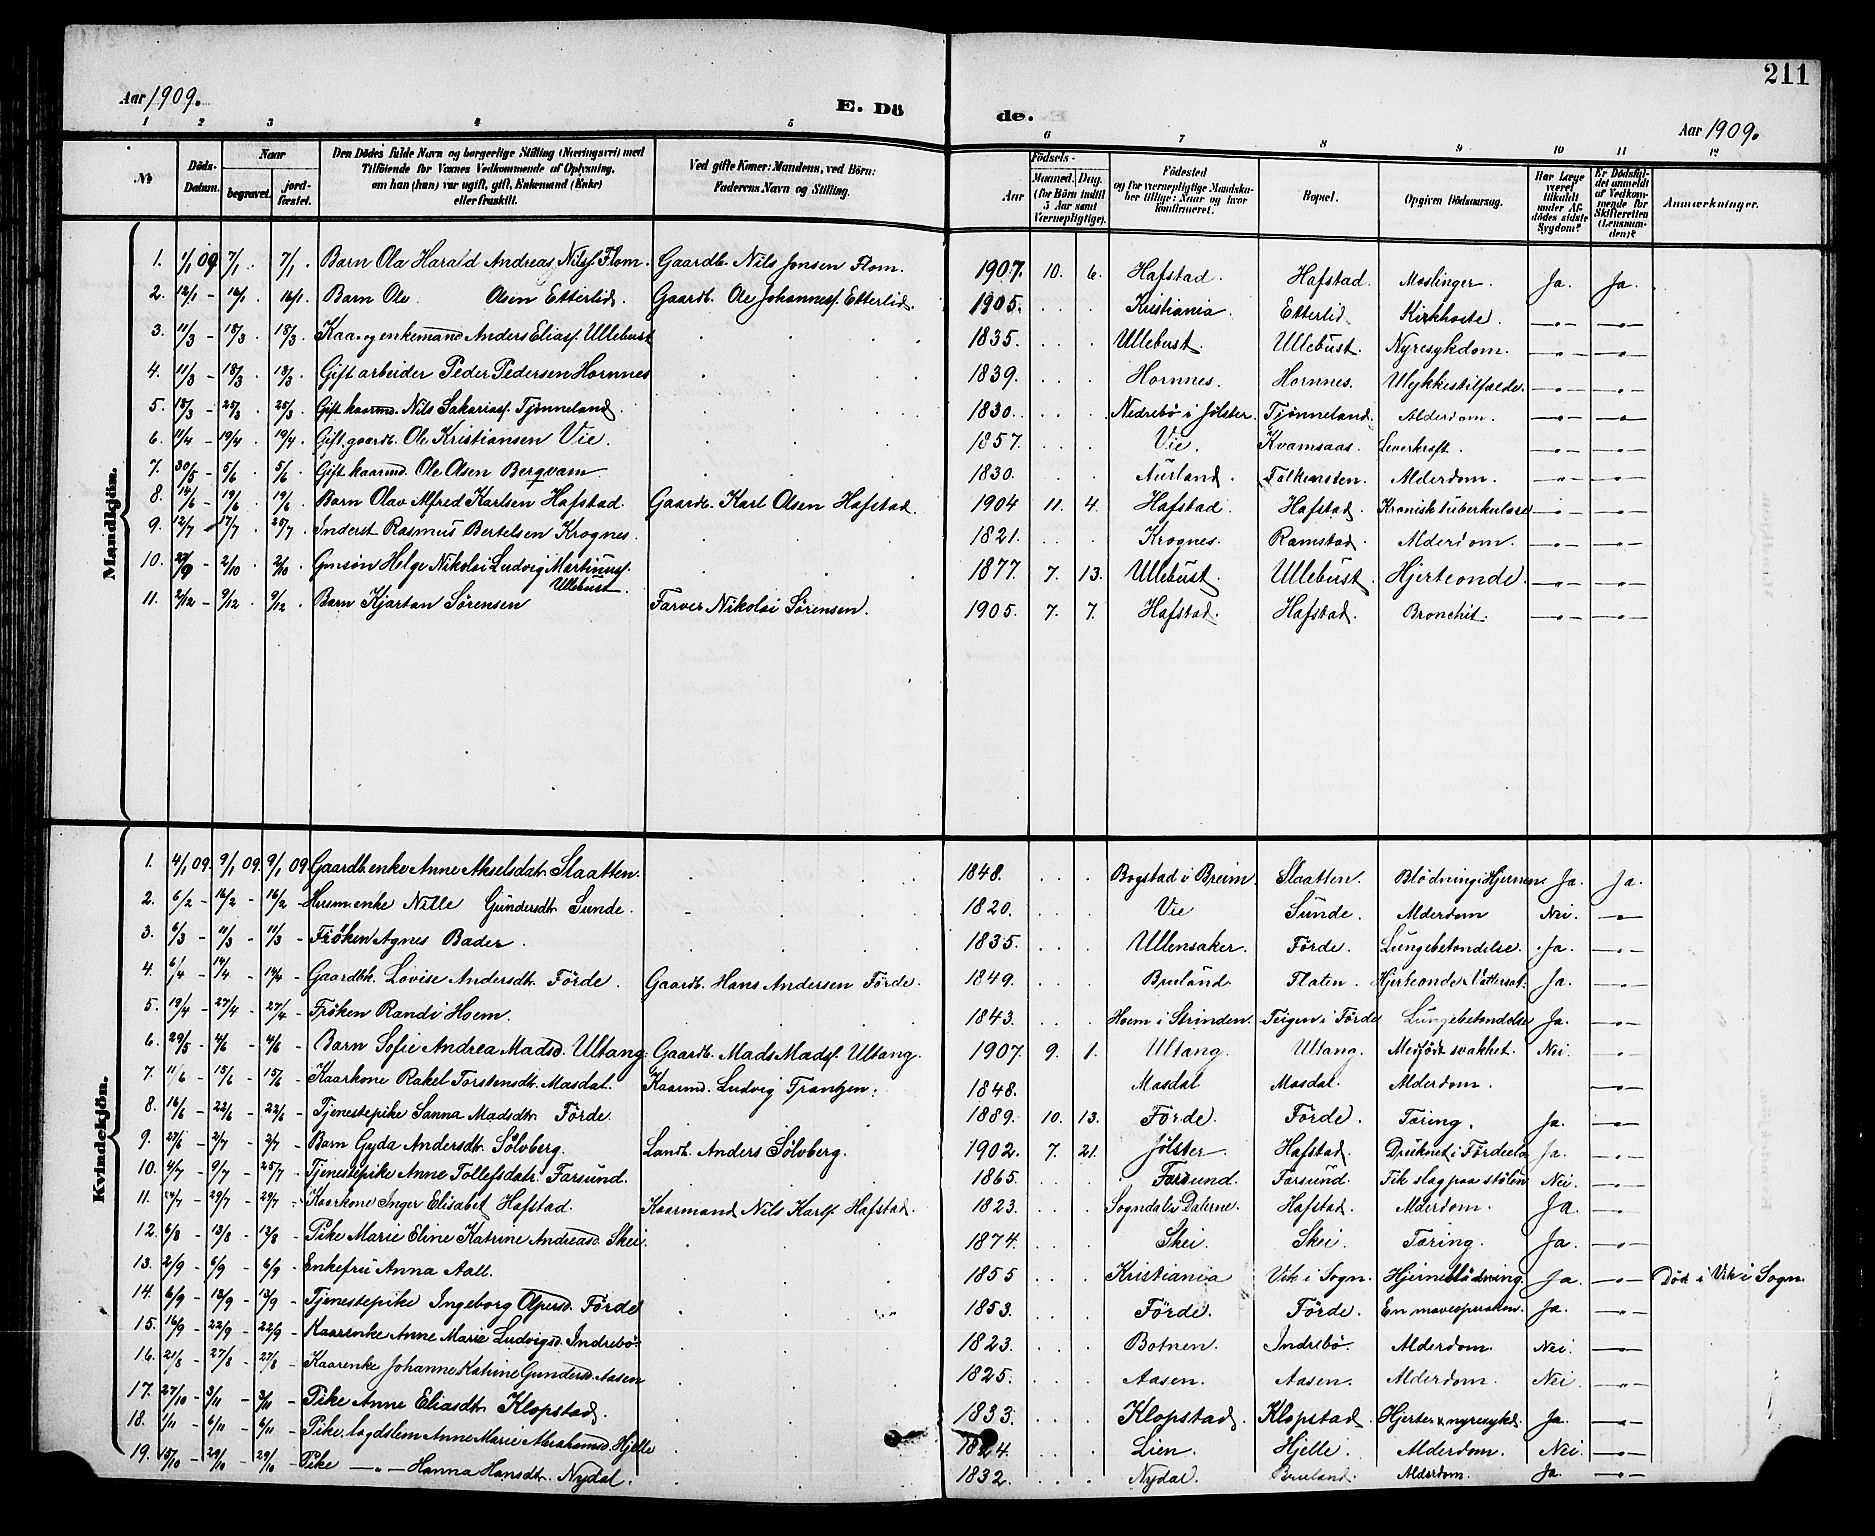 211
Aar 1909.
E. Dö de.
Aar 1909.
1 2 3 4 5 6 7 8 9 10 11 12
No
Döds-Datum.
Naar
begravet.
jord-fæstet.
Den Dödes fulde Navn og borgerlige Stilling (Næringsvei) med Tilföiende for Voxnes Vedkommende af Oplysning, om han (hun) var ugift, gift, Enkemand (Enke) eller fraskilt.
Ved gifte Koner: Mandens, ved Börn: Faderens Navn og Stilling.
Födsels-
Aar
Maaned. Dag.
(for Börn indtil 5 Aar samt Værnepligtige).
Födested og for værnepligtige Mandskaber tillige: Naar og hvor konfirmeret.
Bopæl.
Opgiven Dödsaarsag.
Har Læge været tilkaldt under Afdödes sidste Sygdom?
Er Dödsfaldet anmeldt af Vedkommende for Skifteretten (Lensmanden)?
Anmærkninger.
Mandkjön.
1. 1/1 09 7/1 . 7/1 . Barn Ola Harald Andreas Nilsf. Flom. Gaardb. Nils Jonsen Flom. 1907. 10. 6. Hafstad. Hafstad. Meslinger. Ja. Ja.
2. 12/1 - 16/1 . 16/1 . Barn Ole Olsen Etterlid. Gaardb. Ole Johannesf. Etterlid. 1905. Kristiania. Etterlid. Kirkhoste. -"- -"-
3. 11/3 - 18/3 . 18/3 . Kaar og enkemand Anders Eliasf. Ullebust 1835. Ullebust. Ullebust. Nyresykdom. -"- -"-
4. 11/3 - 18/3 . 18/3 . Gift arbeider Peder Pedersen Hornnes 1839. Hornnes. Hornnes. Ulykkestilfælde. -"- -"-
5. 18/3 - 25/3 . 25/3 . Gift kaarmd. Nils Sakariasf. Tjönneland. 1830. Nedrebö i Jölster. Tjönneland. Alderdom. -"- -"-
6. 11/4 - 19/4 . 19/4 . Gift gaardb. Ole Kristiansen Vie. 1857. Vie. Kvamsaas. Leverkræft. -"- -"-
7. 30/5 - 5/6 . 5/6 . Gift kaarmd. Ole Olsen Bergvam. 1830. Aurland. Falkensten. Alderdom. -"- -"-
8. 14/6 - 19/6 . 19/6 . Barn Olav Alfred Karlsen Hafstad. Gaardb. Karl Olsen Hafstad. 1904 11. 4. Hafstad. Hafstad. Kronisk tuberkulose -"- -"-
9. 12/7 - 17/7 . 25/7 . Inderst Rasmus Bertelsen Krognes. 1821. Krognes. Ramstad. Alderdom. -"- -"-
10. 27/9 - 2/10 . 2/10 . Gmsøn Helge Nikolai Ludvig Martinusf. Ullebust. 1877. 7. 13. Ullebust. Ullebust. Hjerteonde. -"- -"-
11. 2/12 - 9/12 . 9/12 . Barn Kjartan Sörensen Farver Nikolai Sörensen. 1905. 7. 7. Hafstad. Hafstad. Bronchit. -"- -"-
Kvindekjön.
1. 4/1 09. 9/1 09. 9/1 09 Gaardb.enke Anne Akselsdatr. Slaatten. 1848. Bogstad i Breim. Slaatten. Blödning i Hjernen. Ja. Ja.
2. 6/2 - 16/2 - 16/2 - Husm.enke Nille Gundersdtr. Sunde. 1820. Vie Sunde. Alderdom Nei. -"-
3. 6/3 - 11/3 - 11/3 - Fröken Agnes Bader. 1835. Ullensaker. Förde. Lungebetændelse. Ja. -"-
4. 6/4 - 14/4 - 14/4 - Gaardbk. Lovise Andersdtr. Förde. Gaardb. Hans Andersen Förde. 1849. Bruland. Flaten. Hjerteonde Vattersot. Ja. -"-
5. 19/4 - 27/4 - 27/4 - Fröken Randi Hoem. 1843. Hoem i Strinden. Teigen i Förde Lungebetændelse Ja. -"-
6. 29/5 - 4/6 - 4/6 - Barn Sofie Andrea Madsd. Ultang. Gaardb. Mads Madsf. Ultang. 1907. 9. 1. Ultang. Ultang. Medfödt svakhet. Nei. -"-
7. 11/6 - 15/6 - 15/6 - Kaarkone Rakel Torstensdtr. Masdal. Kaarmd. Ludvig Frantzen. 1848. Masdal Masdal. Alderdom. -"-
8. 16/6 - 22/6 - 22/6 - Tjenestepike Sanna Madsdtr. Förde. 1889. 10. 13. Förde. Förde. Tæring. Ja. -"-
9. 27/6 - 2/7 - 2/7 - Barn Gyda Andersdtr. Sölvberg. Landb. Anders Sölvberg. 1902. 7. 21. Jölster. Hafstad. Druknet i Fördeelv Ja. -"-
10. 4/7 - 9/7 - 25/7 - Tjenestepike Anne Tollefsdatr. Farsund. 1865. Farsund. Farsund. Fik slag paa stölen Nei. -"-
11. 24/7 - 29/7 - 29/7 - Kaarkone Inger Elisabet Hafstad. Kaarmand Nils Karlf. Hafstad. 1823. Sogndal i Dalerne. Hafstad. Alderdom. Ja. -"-
12. 6/8 - 13/8 - 13/8 - Pike Marie Eline Katrine Andreasd. Skei. 1874. Skei. Skei. Tæring. Ja. -"-
13. 2/9 - 6/9 - 6/9 - Enkefru Anna Aall. 1855 Kristiania Vik i Sogn. Hjerneblödning. Ja. -"- Död i Vik i Sogn.
14. 6/9 - 13/9 - 13/9 - Tjenestepike Ingeborg Förde 1853. Förde. Förde. En maveoperation. Ja. -"-
15. 16/9 - 22/9 - 22/9 - Kaarenke Anne Marie Ludvigsd. Indrebö. 1823. Botnen. Indrebö. Alderdom. Nei. -"-
16. 21/8 - 27/8 - 27/8 - Kaarenke Johanne Katrine Gundersd. Aasen 1825. Aasen. Aasen. Alderdom. Nei. -"-
17. 27/10 - 3/11 - 3/11 - Pike Anne Eliasdtr. Klopstad. 1833. Klopstad. Klopstad. Hjerte & nyresykd. Ja. -"-
18. 1/11 - 6/11 - 6/11 - Pike, lagdslem Anne Marie Abrahamsd. Hjelle 1824. Lien. Hjelle. Alderdom. Nei. -"-
19. 15/10 - 29/10 - 29/10 - Pike -"- Hanna Hansdtr. Nydal. 1832. Nydal. Bruland. Alderdom. Ja. -"-